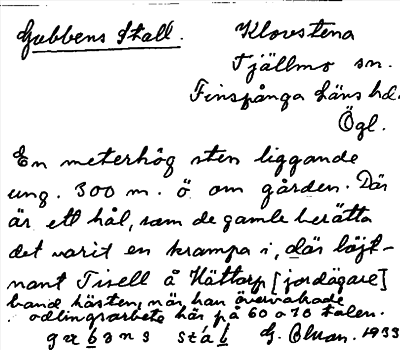 Gubbens Stall.
Klovstena
Tjällmo sn.
Finspånga läns hd.
Ögl.
En meterhög sten liggande
ung. 300 m. ö om gården. Där
är ett hål, som de gamle berätta
det varit en krampa i, där löjt-
nant Tisell å Hättorp [jordägare]
band hästen, när han övervakade
odlingsarbete här på 60 o 70 talen.
gubəns stál G. 1933